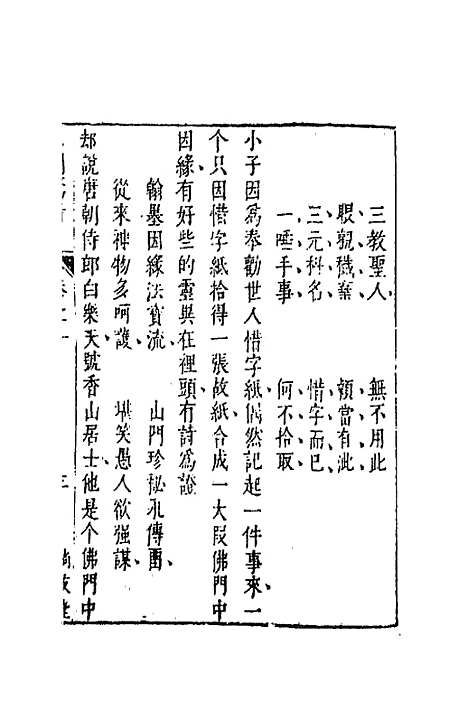 三教聖人　無不用此
眼覩穢棄　顙當有泚
三元科名　惜字而已
一唾手事　何不拾取
小子因爲奉勸世人惜字紙偶然記起一件事來一
个只因惜字紙拾得一張故紙合成一大段佛門中
因緣有好些的靈異在裡頭有詩爲證
翰墨因緣法寶流　山門珍秘永傳留
從來神物多呵護　堪笑愚人欲強謀
却說唐朝侍郎白樂天號香山居士他是个佛門中
卷之一
三